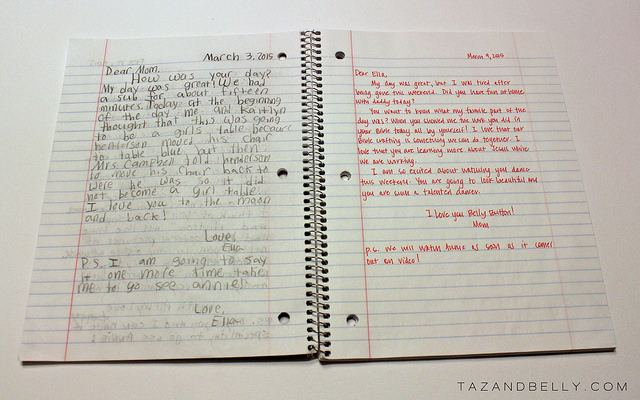 March 3, 2015
Dear Mom,
How was your day?
My day was great! We had
a sub for about fifteen
minutes today at the beginning
of the day me and Kaitlyn
thought that this was going
to be a girls table because
henderson moved his chair
to table blue but then
Mrs Campbell told henderson
to move his chair back to
were he was so it did
not become a girl table
I love you to the moon
and back!
Love,
Ella
P.S. I am going to say
it one more time take
me to go see annie!
Love,
Ella
March 4, 2015
Dear Ella,
My day was great, but I was tired after
being gone this weekend. Did you have fun at home
with daddy today?
You want to know what my favorite part of the
day was? When you showed me the work you did in
your book today all by yourself! I love that our
book writing is something we can do together. I
love that you are learning more about Jesus while
we are writing.
I am so excited about watching you dance
this weekend. You are going to look beautiful and
you are such a talented dancer.
I love you Belly Button!
Mom
p.s. We will watch Annie as soon as it comes
out on video!
TAZANDBELLY.COM